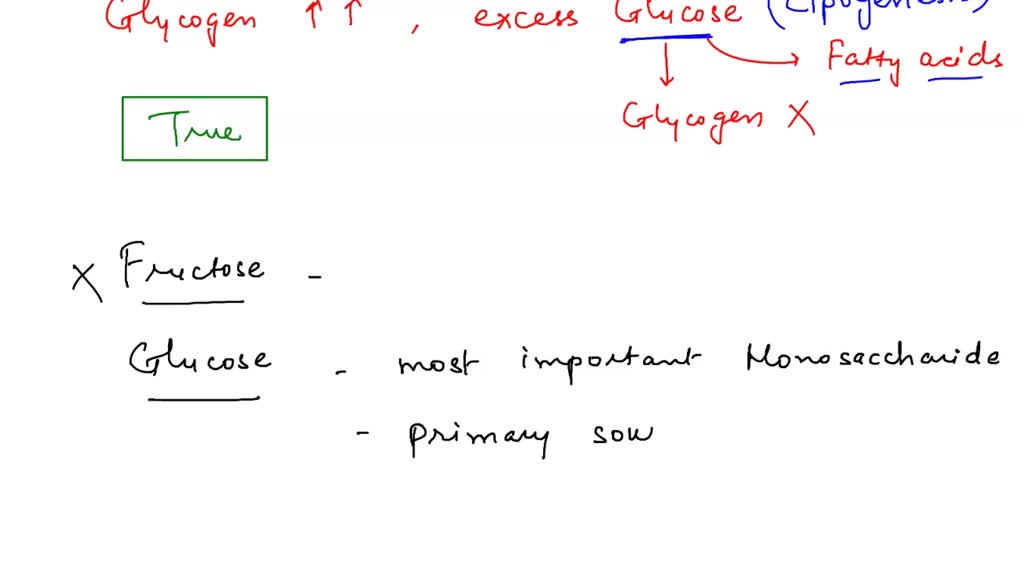 Glycogen ↑ ↑ , excess Glucose (Lipogenesis)
Fatty acids
Glycogen X
True
X Fructose -
Glucose - most important Monosaccharide
- primary sou